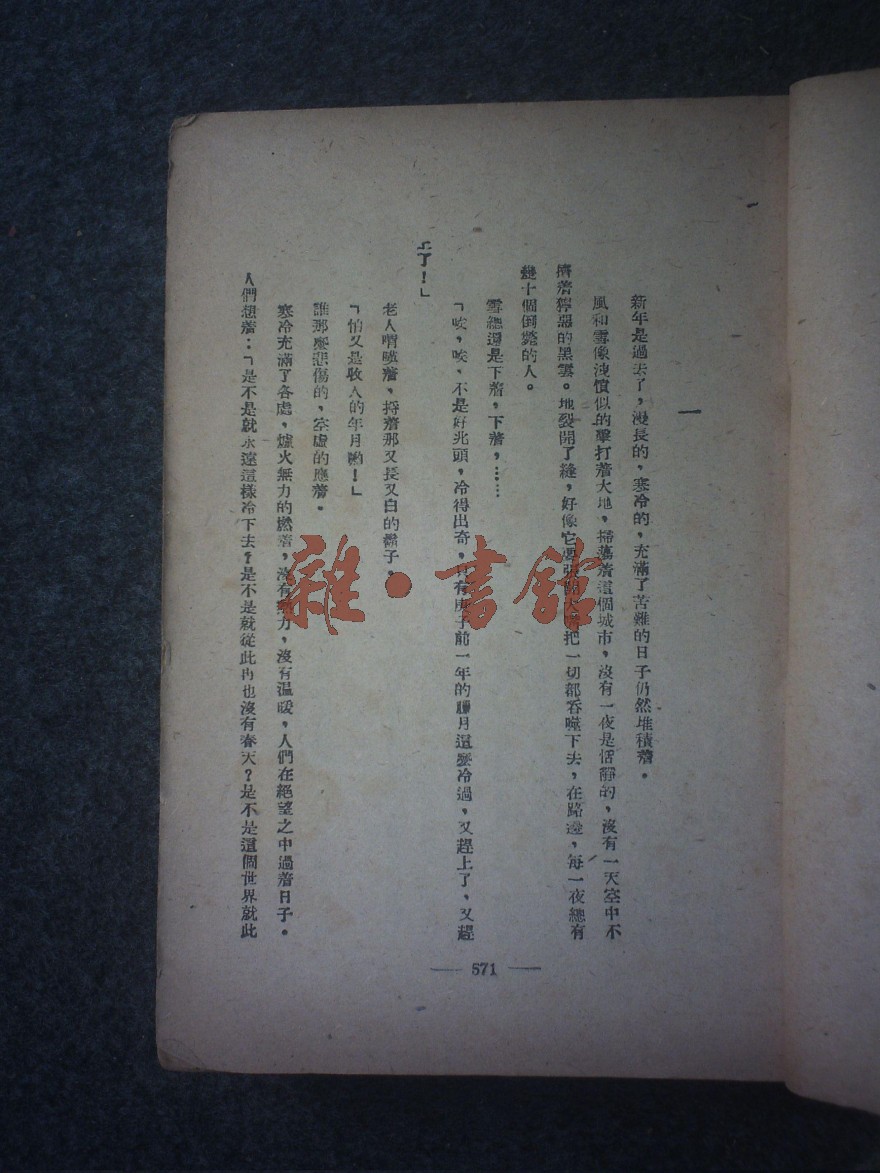 一
新年是過去了，漫長的，寒冷的，充滿了苦難的日子仍然堆積着。
風和雪像洩憤似的擊打着大地，掃蕩着這個城市，沒有一夜是恬靜的，沒有一天空中不
擠着獰惡的黑雲。地裂開了縫，好像它要張開大嘴把一切都吞噬下去，在路邊，每一夜總有
幾十個倒斃的人。
雪總還是下着，下着，……
「唉，唉，不是好兆頭，冷得出奇，有庚子前一年的臘月這麼冷過，又趕上了，又趕
上了！」
老人喟嘆着，捋着那又長又白的鬍子。
「怕又是收人的年月喲！」
誰那麼悲傷的，空虛的應着。
寒冷充滿了各處，爐火無力的燃着，沒有力，沒有溫暖，人們在絕望之中過着日子。
人們想着：「是不是就永遠這樣冷下去？是不是就從此再也沒有春天？是不是這個世界就此
571
雜·書館